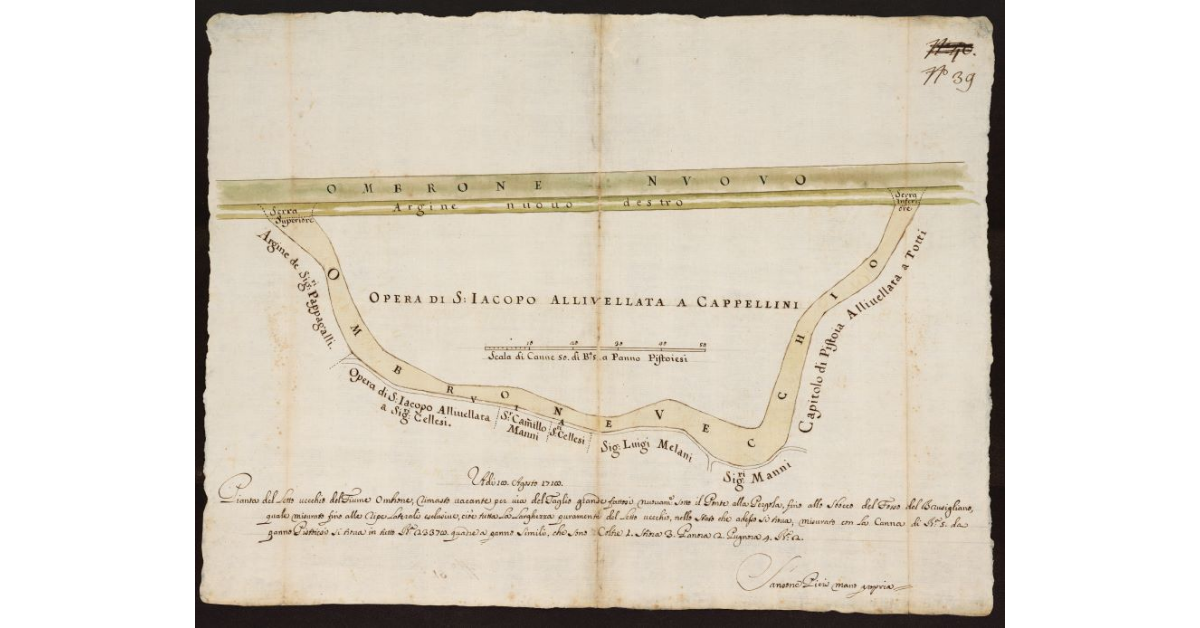 No 40.
No 39
OMBRONE NVOVO
Argine nuouo destro
Serra
Superiore
Serra
Inferi
ore
Argine de Sig:ri Pappagalli.
OMBRONE VECCHIO
OPERA DI S: IACOPO ALLIVELLATA A CAPPELLINI
10 20 30 40 50
Scala di Canne 50. di Ba 5. a Panno Pistoiesi
Opera di S: Iacopo Alliuellata
a Sig: Cellesi.
RVINA
Sr. Camillo
Manni
Sri Cellesi
Sig: Luigi Melani
Sig:ri Manni
Capitolo di Pistoia Alliuellata a Totti
Adi 10. Agosto 1710.
Pianta del Letto vecchio del Fiume Ombrone, rimasto vacante per via del Taglio grande fattosi nuovamte sotto il Ponte alla Pergola, fino allo sbocco del Fosso del Brusigliano,
quale misurato fino alle ripe laterali esclusive, cioè tutta la larghezza puramente del Letto vecchio, nello stato che adesso si trova, misurato con la Canna di Ba 5. da
panno Pistoiesi si trova in tutto quadre a panno simili, che sono Coltre 1. Stiora 3. Panora 2. Pugnora 9. Ba 12.
mano propria